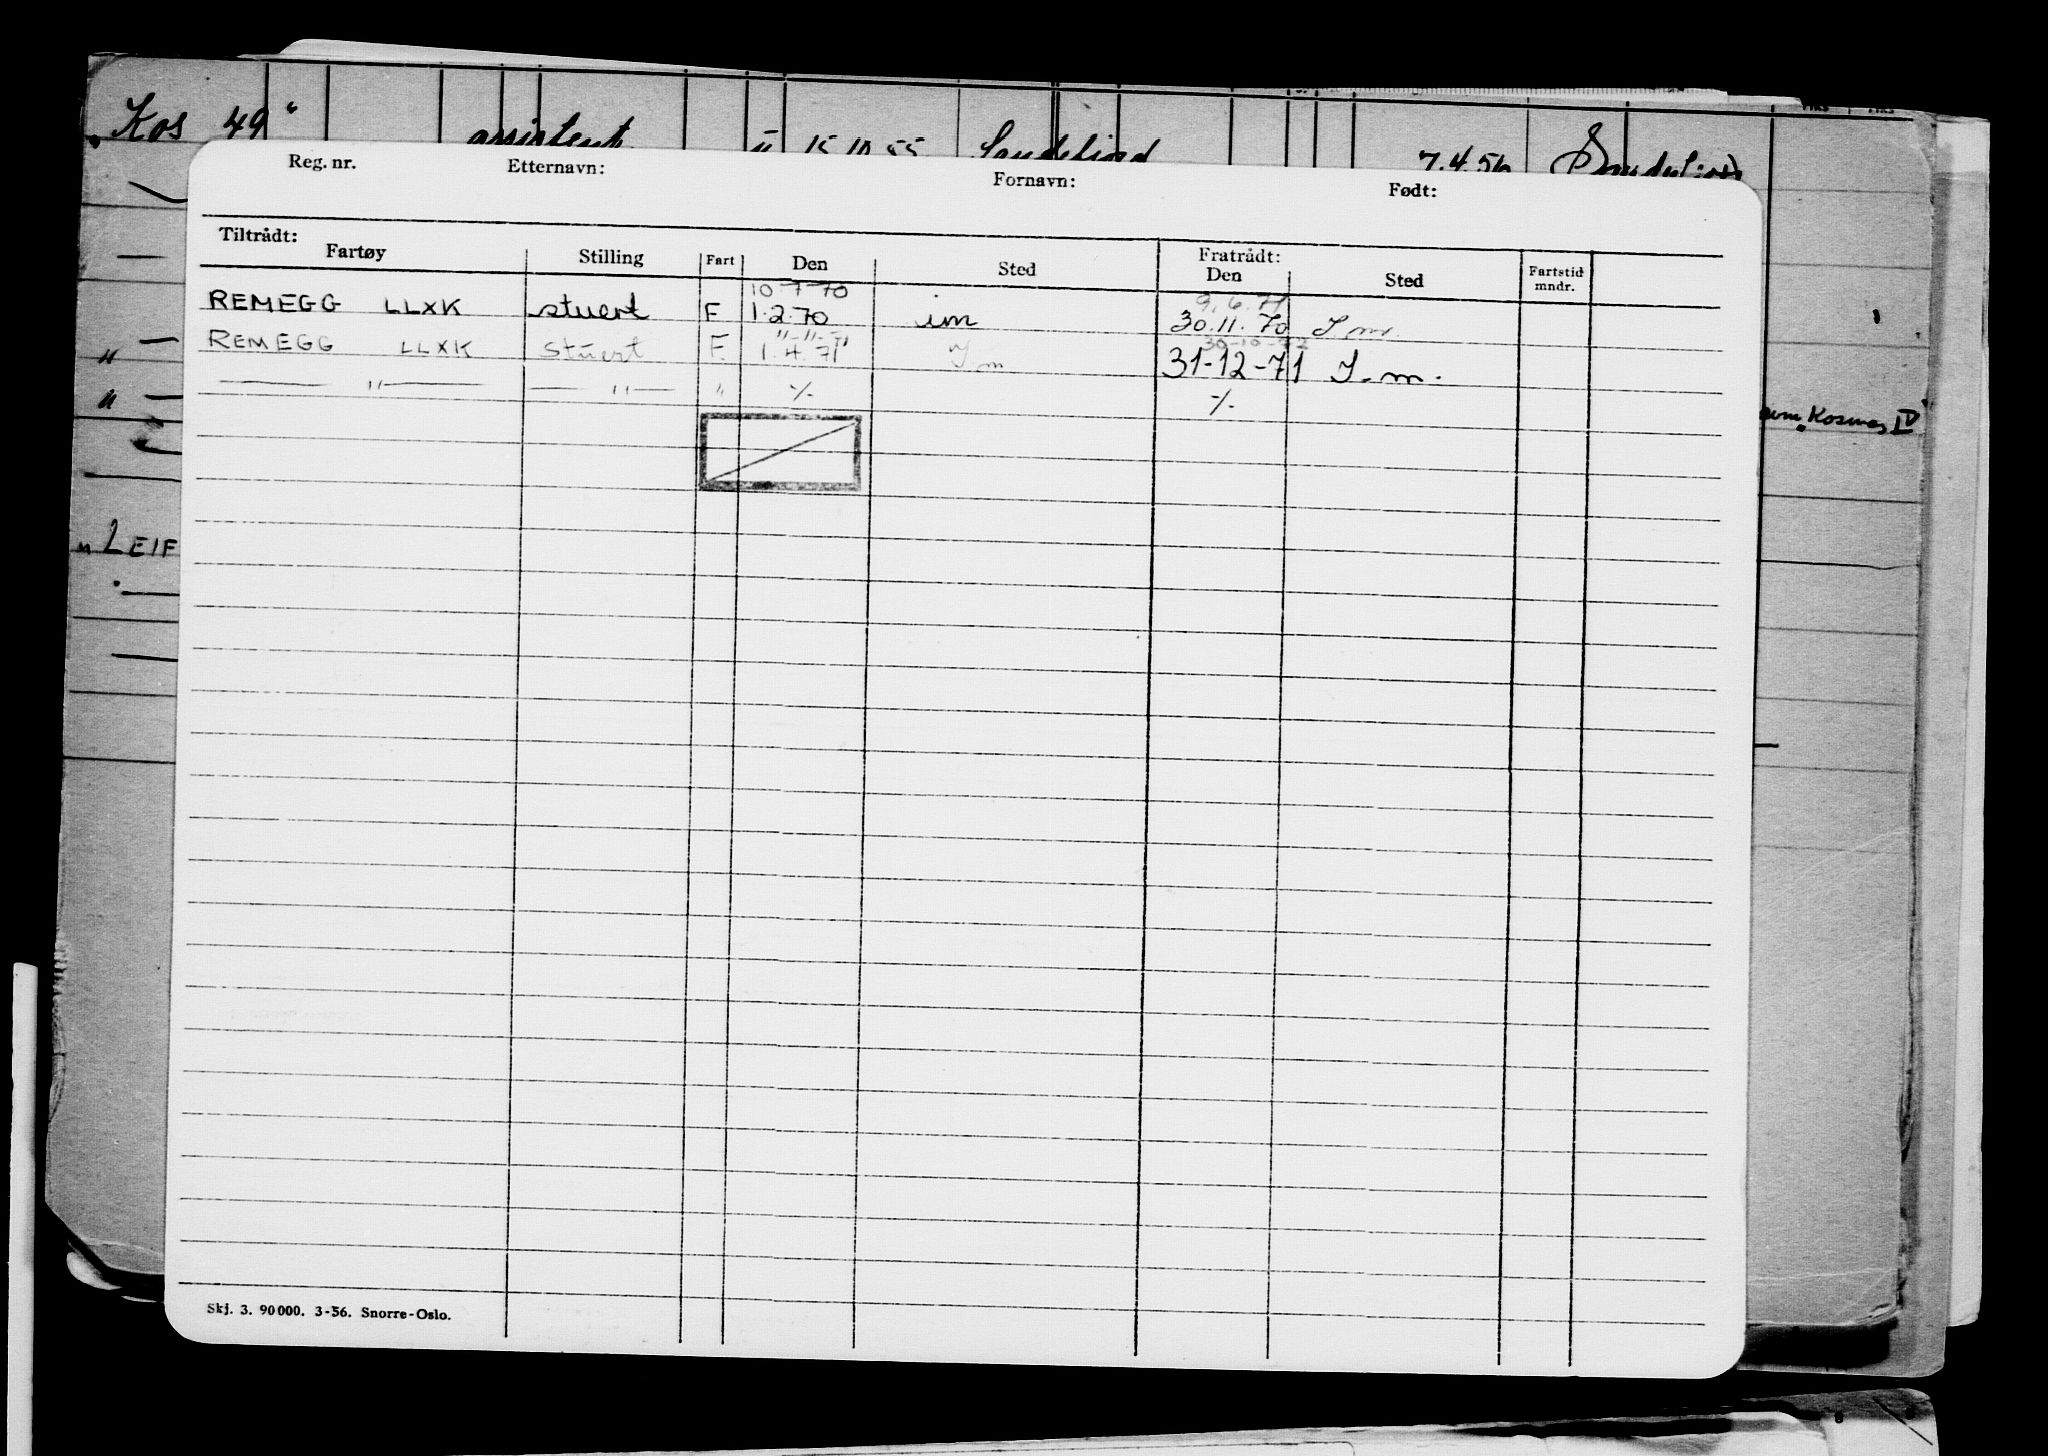 „Kos 49“ assistent u 15.10.55 Sandefjord 7.4.56 Sandefjord
Reg. nr. Etternavn: Fornavn: Født:
Tiltrådt: Fratrådt:
Fartøy Stilling Fart Den Sted Den Sted Fartstid mndr.
10-7-70 9.6.71
REMEGG LLXK stuert F 1.2.70 im 30.11.70 I.m.
"-11-71 30-10-72
REMEGG LLXK stuert F. 1.4.71 I m 31-12-71 I.m.
— " — — " — " ⁒ ⁒
„ —
„ — „Kosmos IV“
„LEIF
Skj. 3. 90000. 3-56. Snorre-Oslo.